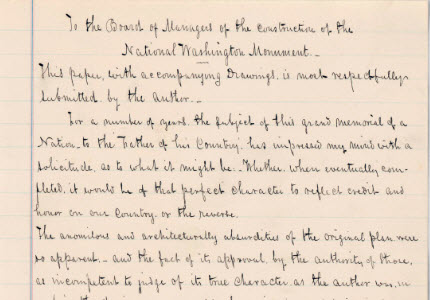 To the Board of Managers of the Construction of the
National Washington Monument._
This paper, with accompanying Drawings, is most respectfully
submitted, by the author._
For a number of years, the subject of this grand memorial of a
Nation, to the Father of his Country, has impressed my mind with a
solicitude, as to what it might be. Whether, when eventually com-
pleted, it would be of that perfect character to reflect credit and
honor on our Country, or the reverse.
The anomilous and architecturally absurdities of the original plan were
so apparent,_ and the fact of its, approval, by the authority of those,
as incompetent to judge of its true character, as the author was, in